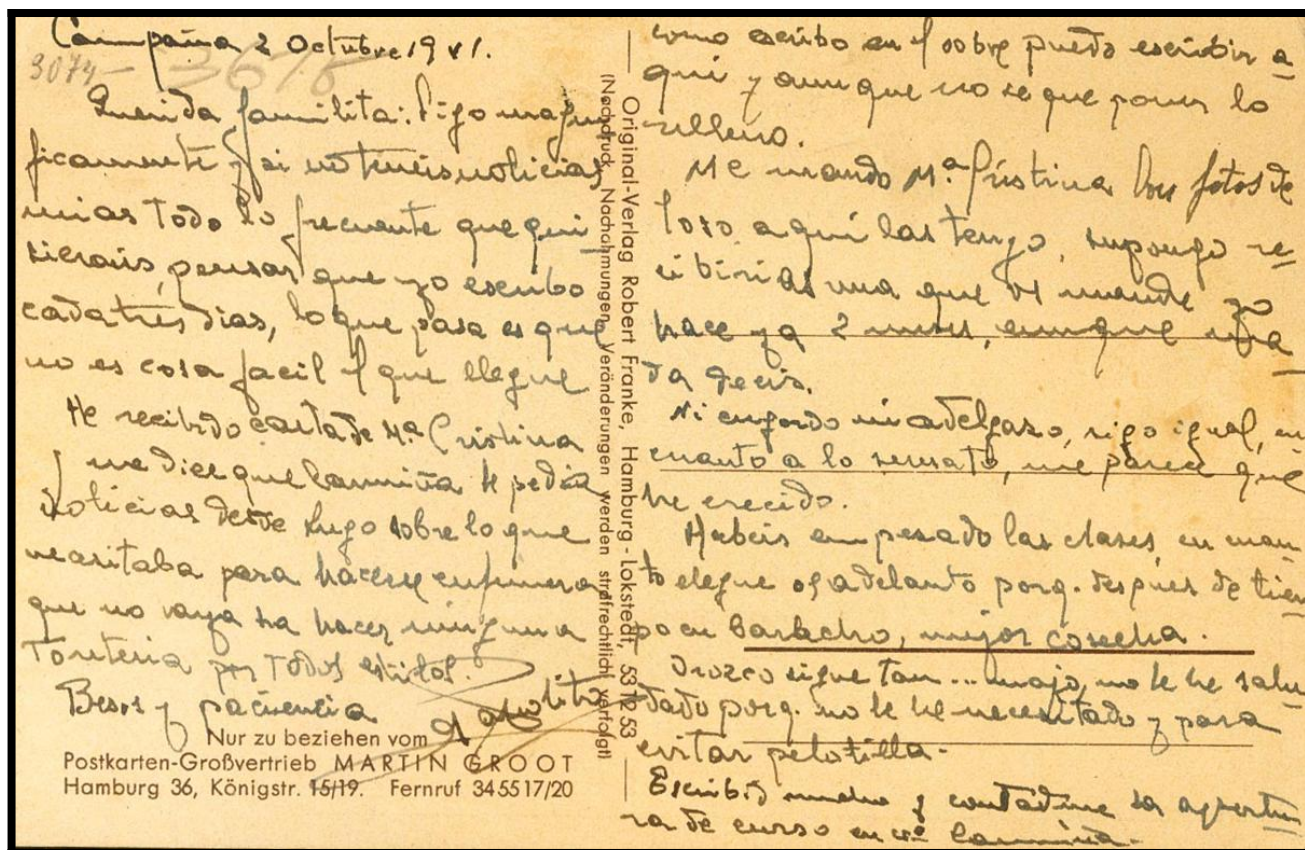 Campaña 2 Octubre 1941.
3074- 3678
Querida familita: Sigo magni
ficamente y si no teneis noticias
mias Todo lo frecuente que qui-
sierais, pensar que yo escribo
cada tres dias, lo que pasa es que
no es cosa facil el que llegue
He recibido carta de Mª Cristina
y me dice que Carmiña te pedia
noticias desde Lugo sobre lo que
necesitaba para hacerse enfermera
que no vaya ha hacer ninguna
Tonteria por Todos estilos.
Besos y paciencia
Nur zu beziehen vom
Postkarten-Großvertrieb MARTIN GROOT
Hamburg 36, Königstr. 15/19. Fernruf 34 55 17/20
Original-Verlag Robert Franke, Hamburg-Lokstedt, 53 12 53
(Nachdruck, Nachahmungen, Veränderungen werden strafrechtlich verfolgt)
como escribo en el sobre puedo escribir a-
qui y aunque no se que poner lo
relleno.
Me mando Mª Cristina dos fotos de
aqui las tengo, supongo re-
cibirias una que os mande yo
hace ya 2 meses, aunque na
da decis.
Ni engordo ni adelgazo, sigo igual, en
cuanto a lo sensato, me parece que
he crecido.
Habeis empezado las clases, en cuan-
to llegue os adelanto porq. despues de tiem
po en barbecho, mejor cosecha.
Orozco sigue tan ... majo, no le he salu-
dado porq. no le he necesitado y para
evitar pelotilla.
Escribid mucho y contadme la apertu-
ra de curso en Carmiña.